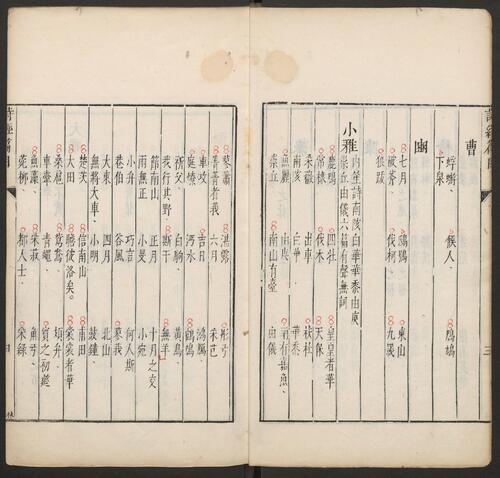 曹
蜉蝣、 候人、 鳲鳩
下泉
豳
七月 鴟鴞 東山
破斧 伐柯 九罭
狼跋
小雅 內笙詩南陔白華華黍由庚
崇丘由儀六篇有聲無詞
鹿鳴 四牡 皇皇者華
常棣 伐木 天保
采薇 出車 杕杜
南陔 白華 華黍
魚麗 由庚 南有嘉魚、
崇丘 南山有臺 由儀
蓼蕭 湛露 彤弓
菁菁者莪 六月 采芑
車攻 吉日 鴻鴈、
庭燎 沔水 鶴鳴
祈父、 白駒、 黃鳥
我行其野 斯干 無羊
節南山 正月 十月之交
雨無正 小旻 小宛
小弁 巧言 何人斯
巷伯 谷風 蓼莪
大東 四月 北山
無將大車、 小明 鼓鍾、
楚茨 信南山 甫田
大田 瞻彼洛矣。 裳裳者華
桑扈 鴛鴦 頍弁、
車舝 青蠅、 賓之初筵
魚藻、 采菽 角弓、
菀柳、 都人士、 采綠